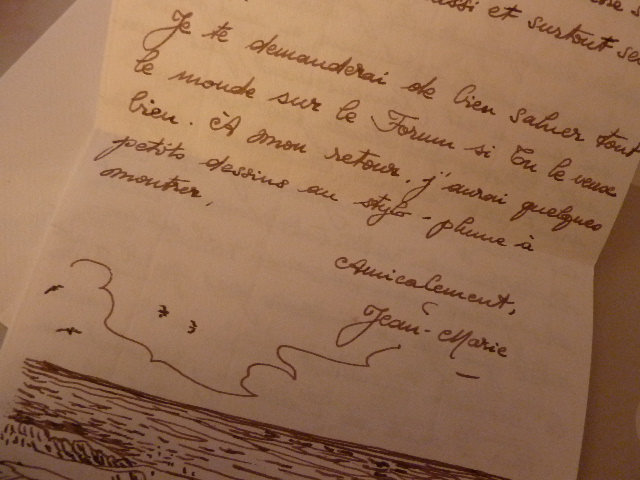 aussi et surtout
Je te demanderai de bien saluer tout
le monde sur le Forum si Tu le veux
bien. À mon retour, j'aurai quelques
petits dessins au stylo-plume à
montrer.
Amicalement,
Jean-Marie